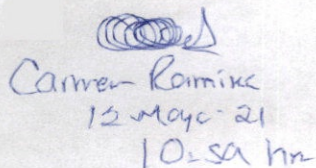 Carmen Ramirez
12 Mayo-21
10:50 hrs